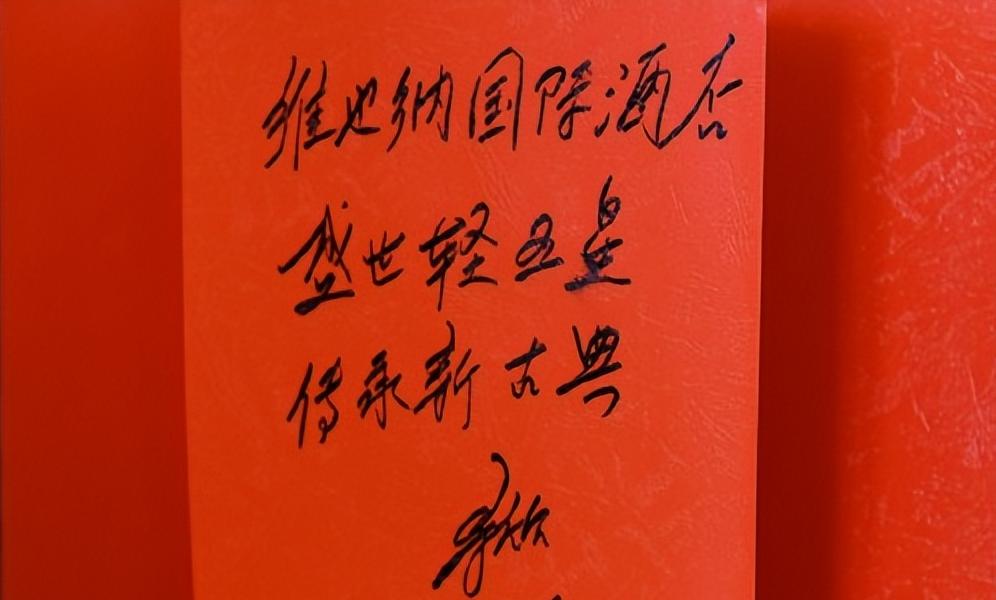 维也纳国际酒店
盛世轻五星
传承新古典